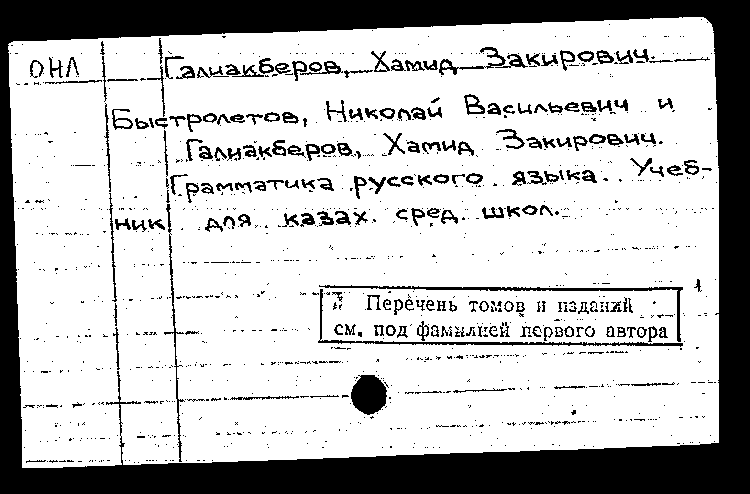 ОНЛ Галиакберов, Хамид Закирович.
Быстролетов, Николай Васильевич и
Галиакберов, Хамид Закирович.
Грамматика русского языка. Учеб-
ник для казах. сред. школ.
Перечень томов и изданий
см. под фамилией первого автора